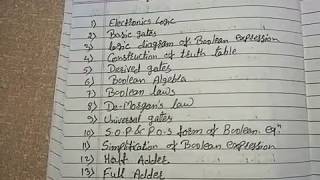 1) Electronics Logic
2) Basic gates
3) Logic diagram of Boolean expression
4) Construction of truth table
5) Derived gates
6) Boolean Algebra
7) Boolean laws
8) De-Morgan's law
9) Universal gates
10) S.O.P & P.O.S form of Boolean eqn
11) Simplification of Boolean Expression
12) Half Adder
13) Full Adder